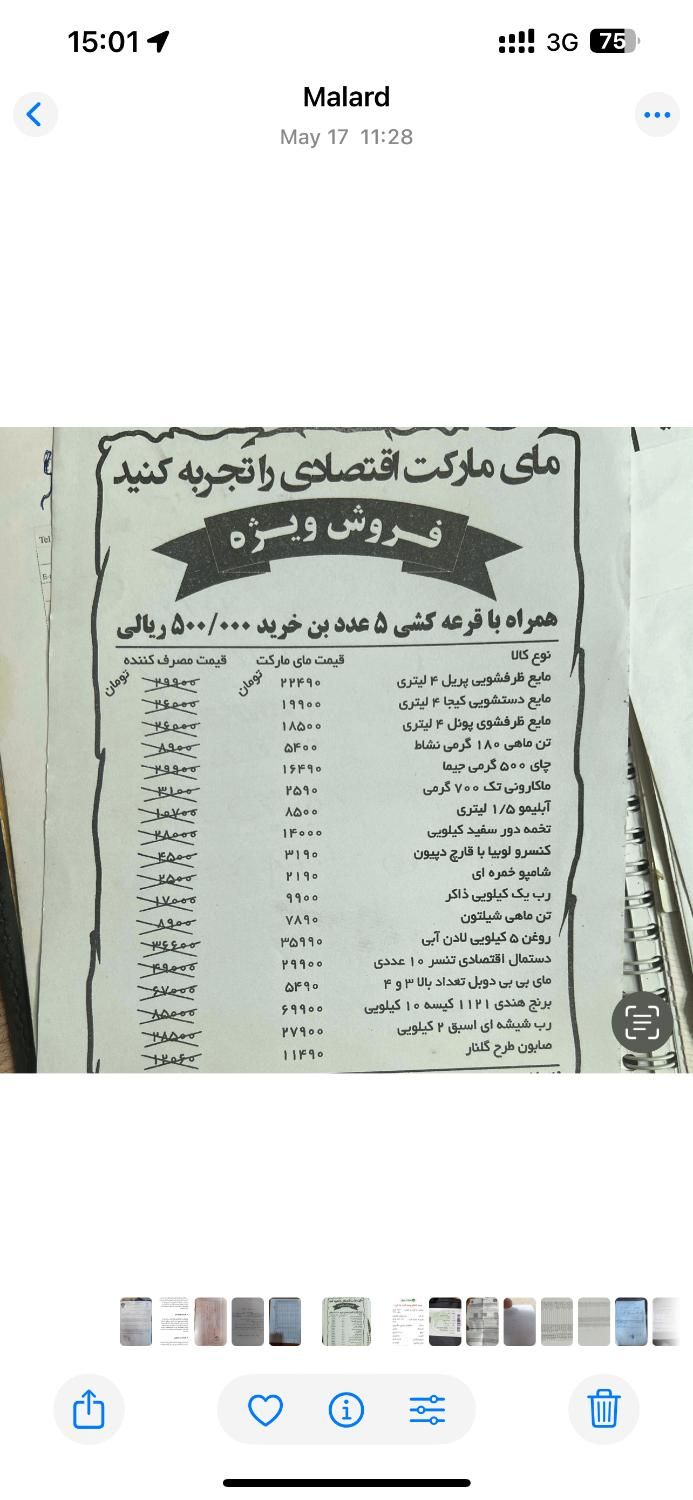 15:01
3G 75
Malard
May 17 11:28
Tel
مای مارکت اقتصادی را تجربه کنید
فروش ویژه
همراه با قرعه کشی ۵ عدد بن خرید ۵۰۰/۰۰۰ ریالی
نوع کالا قیمت مای مارکت قیمت مصرف کننده
مایع ظرفشویی پریل ۴ لیتری ۲۲۴۹۰ تومان ۲۹۹۰۰ تومان
مایع دستشویی کیجا ۴ لیتری ۱۹۹۰۰ ۲۶۰۰۰
مایع ظرفشوی پونل ۴ لیتری ۱۸۵۰۰ ۲۶۰۰۰
تن ماهی ۱۸۰ گرمی نشاط ۵۴۰۰ ۸۹۰۰
چای ۵۰۰ گرمی جیما ۱۶۴۹۰ ۲۹۹۰۰
ماکارونی تک ۷۰۰ گرمی ۲۵۹۰ ۳۱۰۰
آبلیمو ۱/۵ لیتری ۸۵۰۰ ۱۰۷۰۰
تخمه دور سفید کیلویی ۱۴۰۰۰ ۲۸۰۰۰
کنسرو لوبیا با قارچ دپیون ۳۱۹۰ ۴۵۰۰
شامپو خمره ای ۲۱۹۰ ۲۵۰۰
رب یک کیلویی ذاکر ۹۹۰۰ ۱۷۰۰۰
تن ماهی شیلتون ۷۸۹۰ ۸۹۰۰
روغن ۵ کیلویی لادن آبی ۳۵۹۹۰ ۳۶۶۰۰
دستمال اقتصادی تنسر ۱۰ عددی ۲۹۹۰۰ ۴۹۰۰۰
مای بی بی دوبل تعداد بالا ۳ و ۴ ۵۴۹۰ ۶۷۰۰۰
برنج هندی ۱۱۲۱ کیسه ۱۰ کیلویی ۶۹۹۰۰ ۸۵۰۰۰
رب شیشه ای اسبق ۲ کیلویی ۲۷۹۰۰ ۲۸۵۰۰
صابون طرح گلنار ۱۱۴۹۰ ۱۲۰۶۰